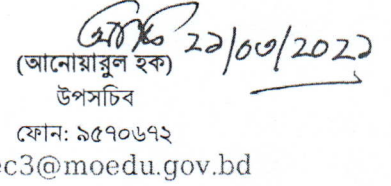 ২১/০৩/২০২১
(আনোয়ারুল হক)
উপসচিব
ফোন: ৯৫৭০৬৭২
ec3@moedu.gov.bd